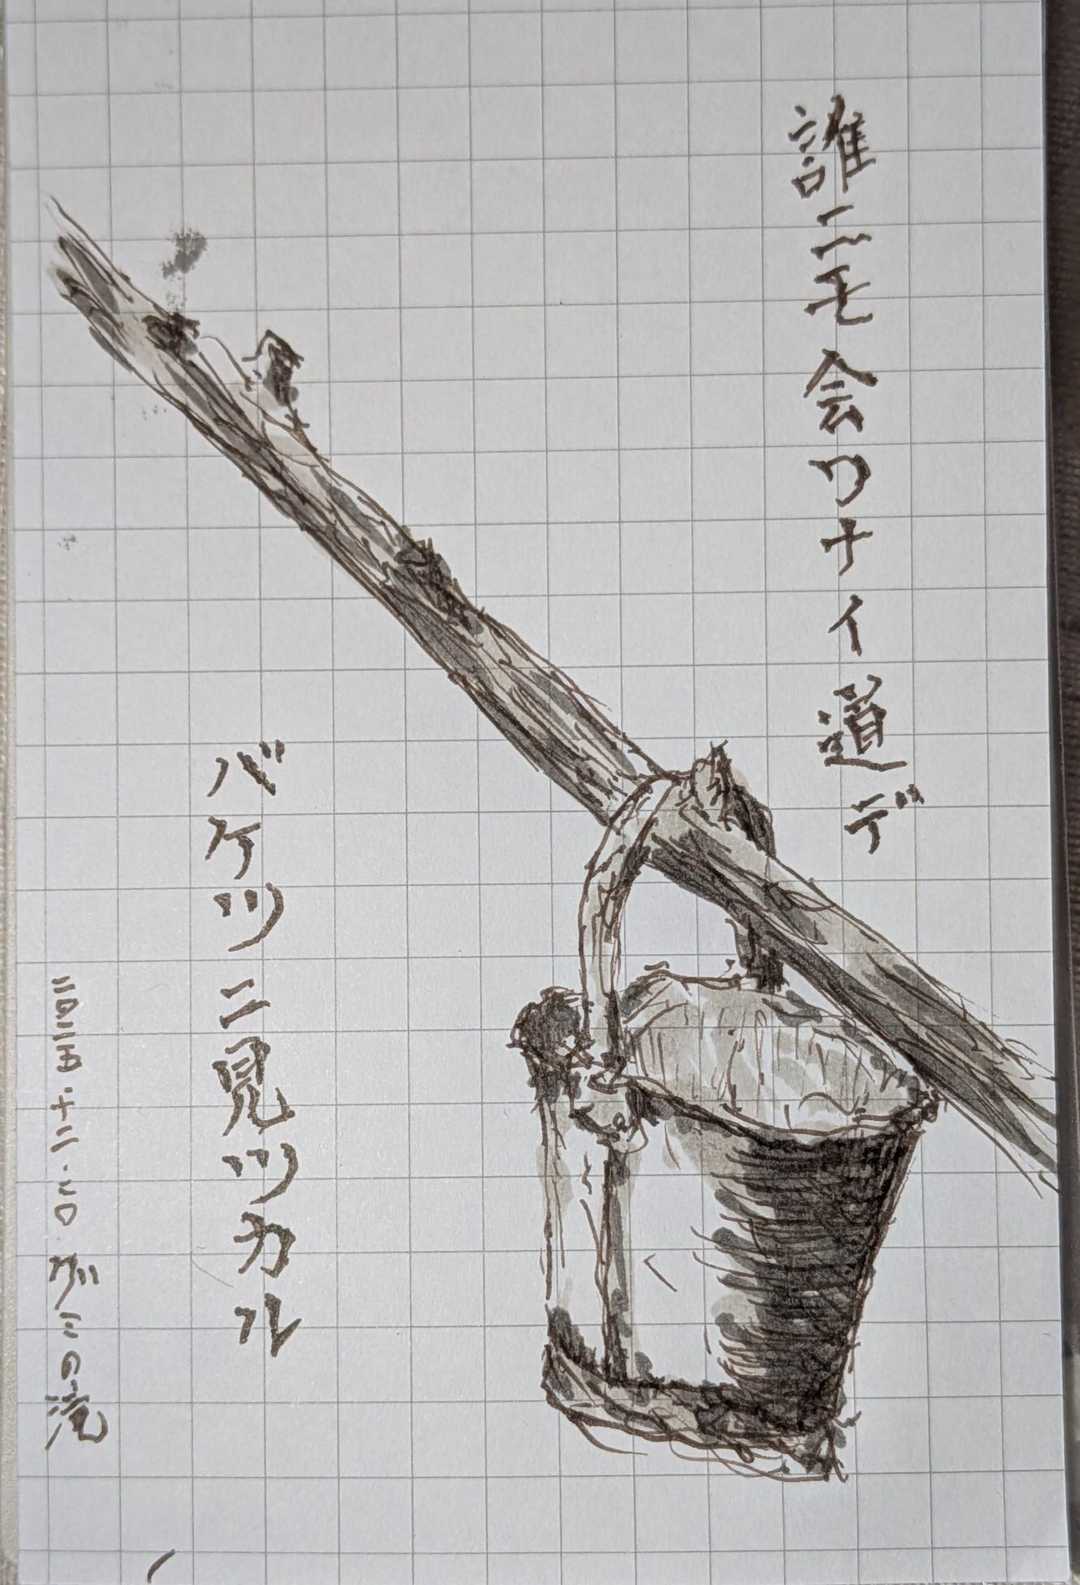 誰ニモ会ワナイ道デ
バケツニ見ツカル
二〇二五・十二・二〇 グミの滝